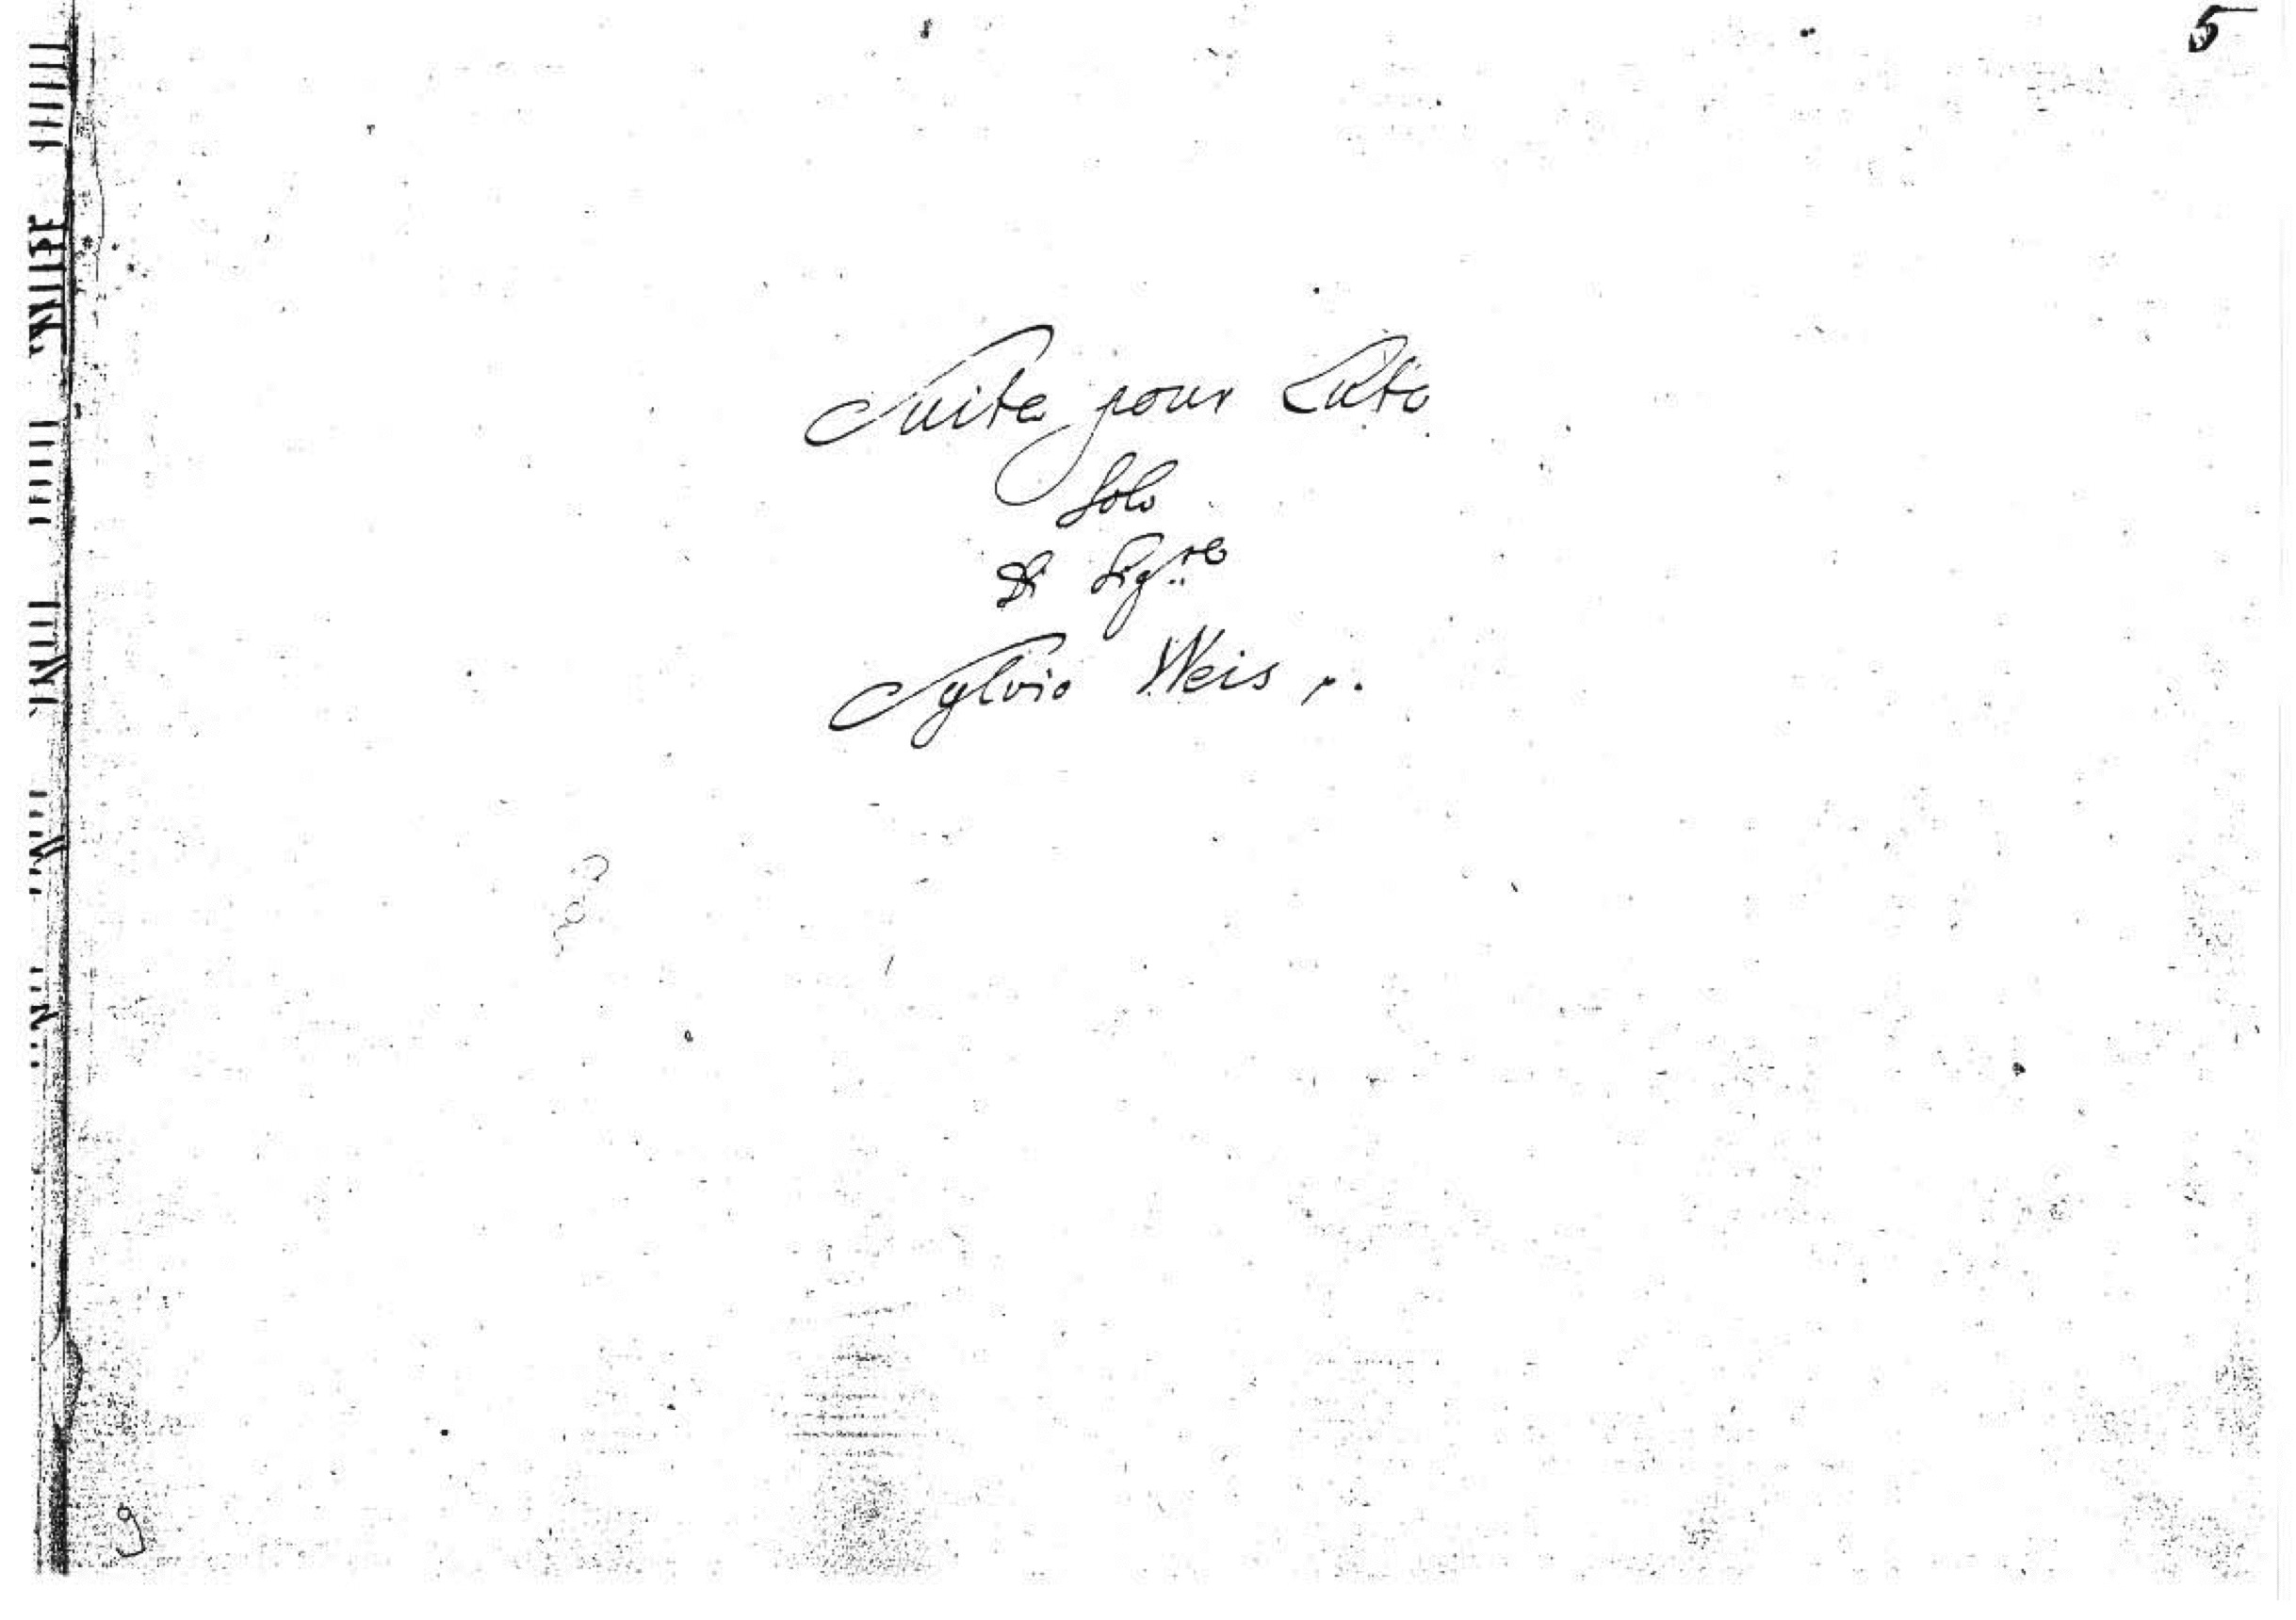 5
Suite pour Luto
Solo
Di Sig.re
Sylvio Weis p.
9